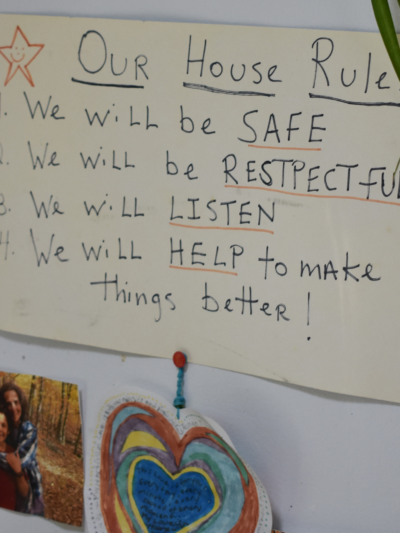 OUR House Rule
1. We will be SAFE
2. We will be RESPECTFU
3. We will LISTEN
4. We will HELP to make
things better!